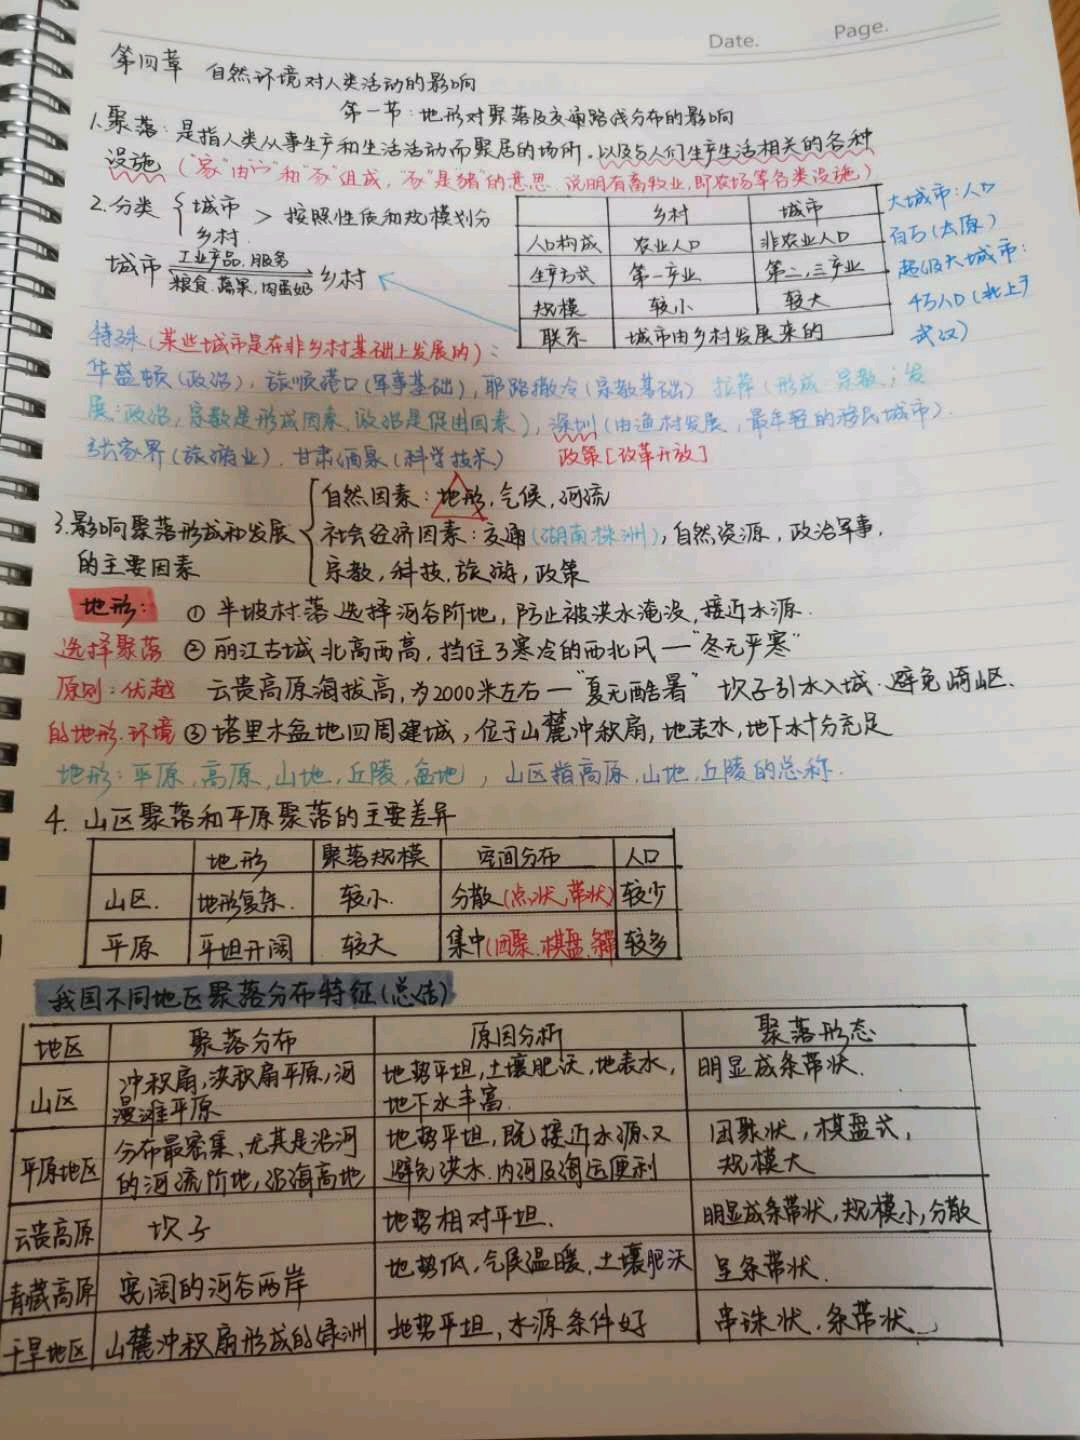 Date. Page.
第四章 自然环境对人类活动的影响
第一节:地形对聚落及交通路线分布的影响
1.聚落:是指人类从事生产和生活活动而聚居的场所.以及与人们生产生活相关的各种
设施("家"由"宀"和"豕"组成,"豕"是"猪"的意思.说明有畜牧业,即农场等各类设施)
2.分类 { 城市 乡村 > 按照性质和规模划分
城市 工业产品.服务 粮食.蔬果,肉蛋奶 乡村
乡村 城市
人口构成 农业人口 非农业人口
生产方式 第一产业 第二,三产业
规模 较小 较大
联系 城市由乡村发展来的
大城市:人口
百万(太原)
超级大城市:
千万人口(北上广
武汉)
特殊(某些城市是在非乡村基础上发展的):
华盛顿(政治),旅顺港口(军事基础),耶路撒冷(宗教基础) 拉萨(形成:宗教;发
展:政治,宗教是形成因素.政治是促进因素),深圳(由渔村发展,最年轻的移民城市).
张家界(旅游业).甘肃酒泉(科学技术) 政策[改革开放]
3.影响聚落形成和发展
的主要因素
自然因素:地形,气候,河流
社会经济因素:交通(湖南株洲),自然资源,政治军事,
宗教,科技,旅游,政策
地形: ① 半坡村落选择河谷阶地,防止被洪水淹没,接近水源.
选择聚落 ② 丽江古城北高西高,挡住了寒冷的西北风—"冬无严寒"
原则:优越 云贵高原海拔高,为2000米左右—"夏无酷暑" 坎子引水入城.避免崎区.
的地形.环境 ③ 塔里木盆地四周建城,位于山麓冲积扇,地表水,地下水十分充足
地形:平原,高原,山地,丘陵,盆地,山区指高原,山地,丘陵的总称.
4. 山区聚落和平原聚落的主要差异
地形 聚落规模 空间分布 人口
山区. 地形复杂. 较小. 分散(点状,带状) 较少
平原 平坦开阔 较大 集中(团聚.棋盘. 较多
我国不同地区聚落分布特征(总结)
地区 聚落分布 原因分析 聚落形态
山区 冲积扇,洪积扇平原,河
漫滩平原 地势平坦,土壤肥沃,地表水,
地下水丰富. 明显成条带状.
平原地区 分布最密集,尤其是沿河
的河流阶地,沿海高地 地势平坦,既接近水源又
避免洪水.内河及海运便利 团聚状,棋盘式,
规模大
云贵高原 坎子 地势相对平坦. 明显成条带状,规模小,分散
青藏高原 宽阔的河谷两岸 地势低,气候温暖.土壤肥沃 呈条带状.
干旱地区 山麓冲积扇形成的绿洲 地势平坦,水源条件好 串珠状.条带状